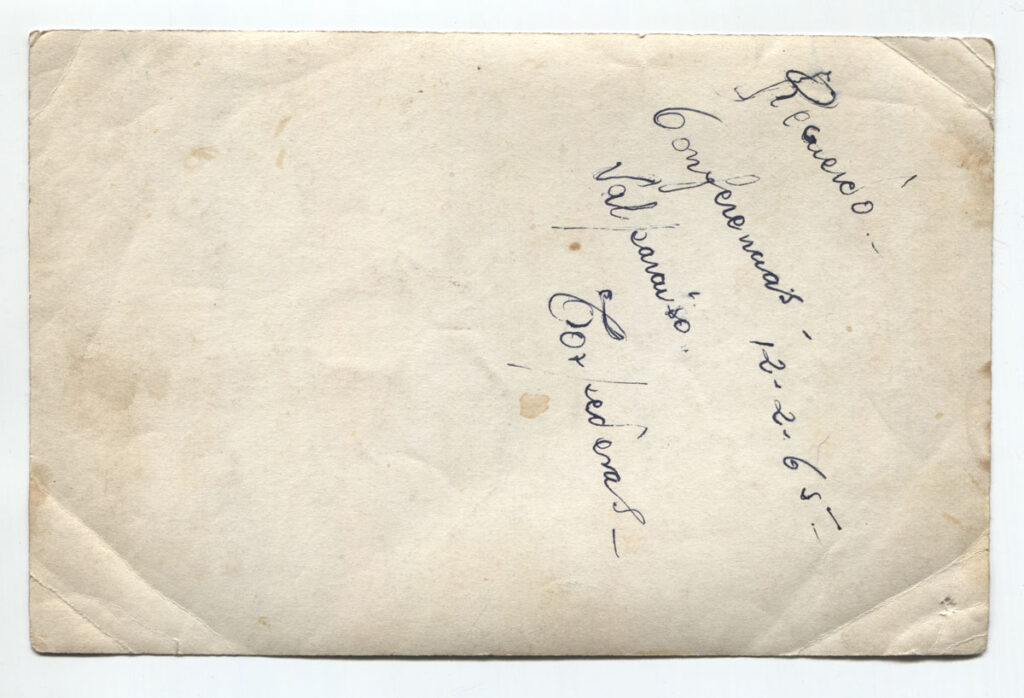 Recuerdo.-
Conferencias - 12-2-65-
Valparaiso.
Torpederas -